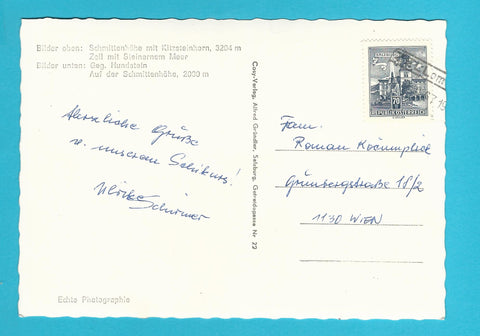 Bilder oben: Schmittenhöhe mit Kitzsteinhorn, 3204 m
Zell mit Steinernem Meer
Bilder unten: Geg. Hundstein
Auf der Schmittenhöhe, 2000 m
Herzliche Grüße
v. unserem Schikurs!
Ulrike
Schirmer
Echte Photographie
Cosy-Verlag, Alfred Gründler, Salzburg, Getreidegasse Nr 22
70
REPUBLIK ÖSTERREICH
Fam.
Roman
Grünbergstraße 18/2
1130 WIEN